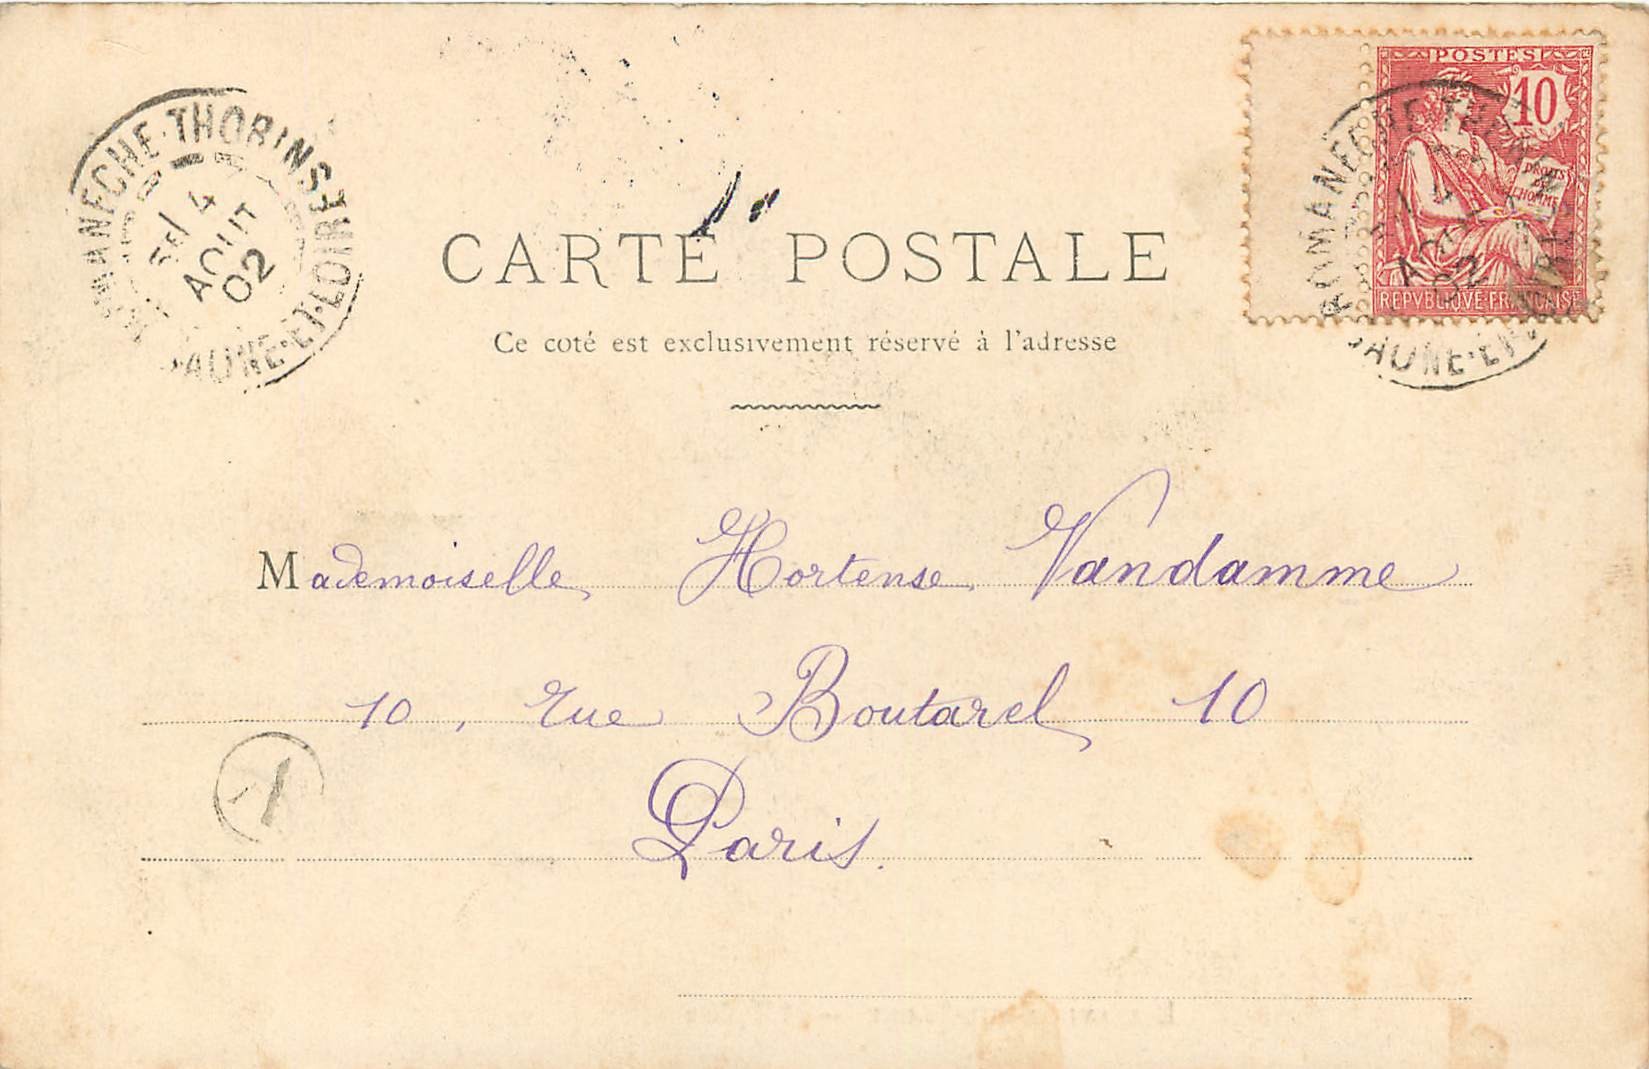 ROMANÈCHE-THORINS
SAONE-ET-LOIRE
4
AOUT
02
POSTES
10
DROITS
DE
L'HOMME
REPVBLIQVE FRANÇAISE
ROMANÈCHE-THORINS
SAONE-ET-LOIRE
4
AOUT
02
CARTE POSTALE
Ce coté est exclusivement réservé à l'adresse
Mademoiselle Hortense Vandamme
10, rue Boutarel 10
Paris.
1